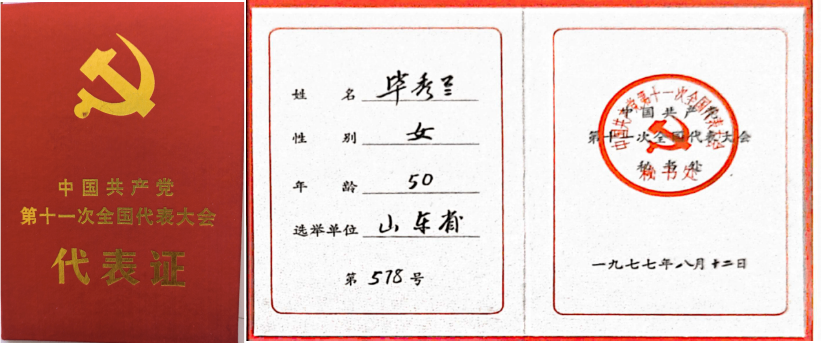 中国共产党
第十一次全国代表大会
代表证
姓名 毕秀兰
性别 女
年龄 50
选举单位 山东省
第 578 号
中国共产党第十一次全国代表大会
秘书处
中国共产党
第十一次全国代表大会
秘书处
一九七七年八月十二日